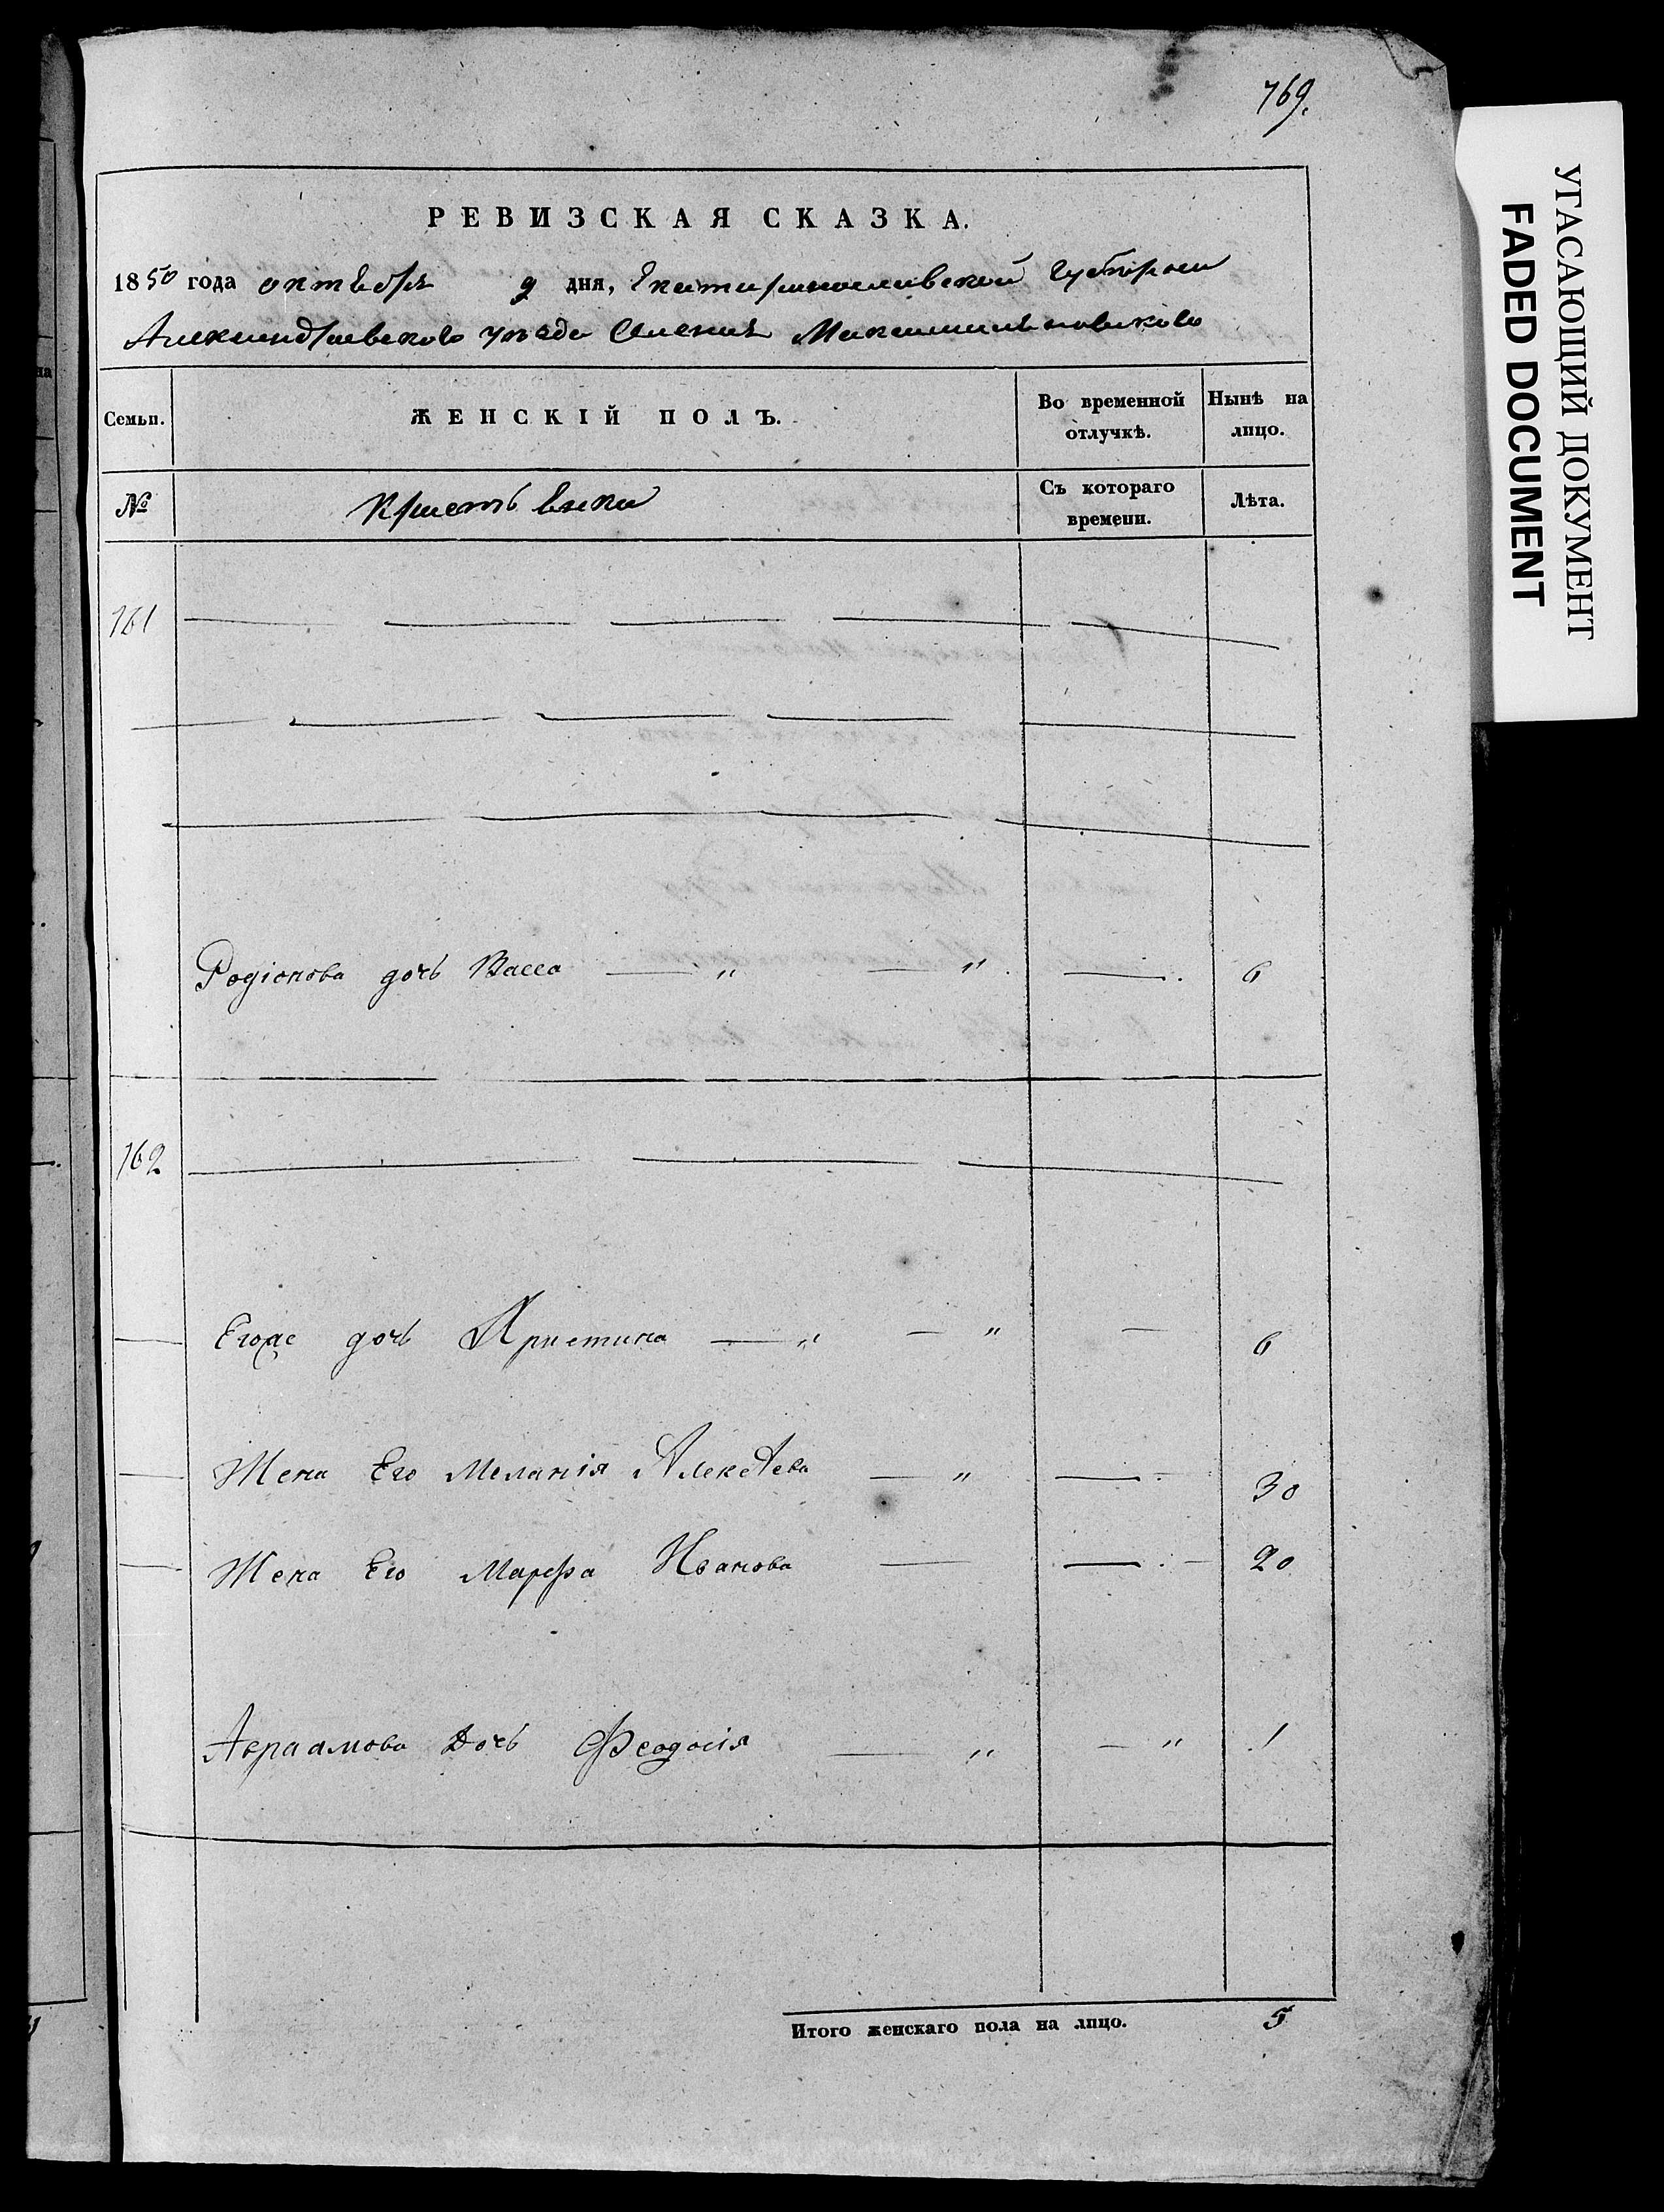 769.
РЕВИЗСКАЯ СКАЗКА.
1850 года октебря 9 дня, Екатиринославской Губернии
Александравскова уезда Селения Максимильяновскова
Семьи. ЖЕНСКІЙ ПОЛЪ. Во временной отлучкѣ. Нынѣ на лицо.
№ Крест Съ котораго времени. Лѣта.
161
Родіонова дочь Васса — " — " — 6
162
Егоже дочь Христина — " — " — 6
Жена Его Меланія Алексѣева — " — 30
Жена Его Марфа Иванова — — 20
Авраамова Дочь Феодосія — " — " 1
Итого женскаго пола на лицо. 5
УГАСАЮЩИЙ ДОКУМЕНТ
FADED DOCUMENT